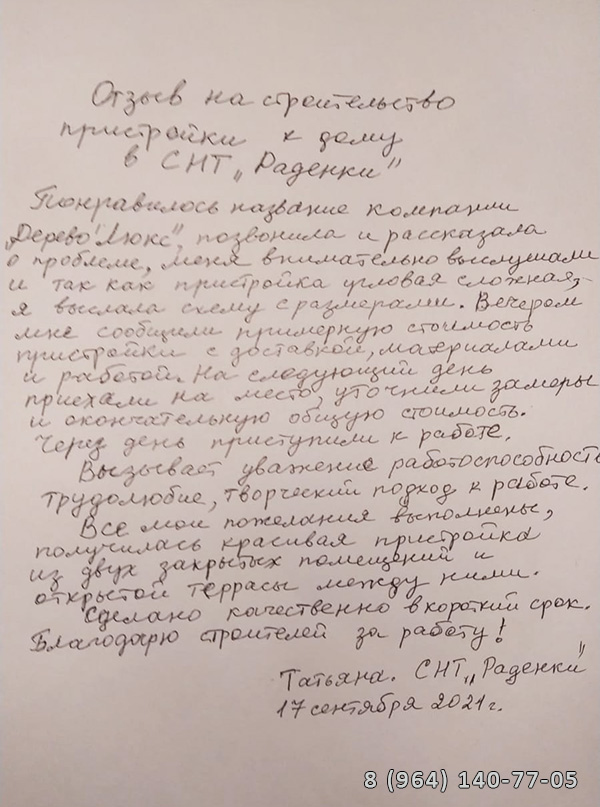 Отзыв на строительство
пристройки к дому
в СНТ „Раденки"
Понравилось название компании
„Дерево Люкс", позвонила и рассказала
о проблеме, меня внимательно выслушали
и так как пристройка угловая сложная,
я выслала схему с размерами. Вечером
мне сообщили примерную стоимость
пристройки с доставкой, материалами
и работой. На следующий день
приехали на место, уточнили замеры
и окончательную общую стоимость.
Через день приступили к работе.
Вызывает уважение работоспособность
трудолюбие, творческий подход к работе.
Все мои пожелания выполнены,
получилась красивая пристройка
из двух закрытых помещений и
открытой террасы между ними.
Сделано качественно в короткий срок.
Благодарю строителей за работу!
Татьяна. СНТ „Раденки"
17 сентября 2021 г.
8 (964) 140-77-05